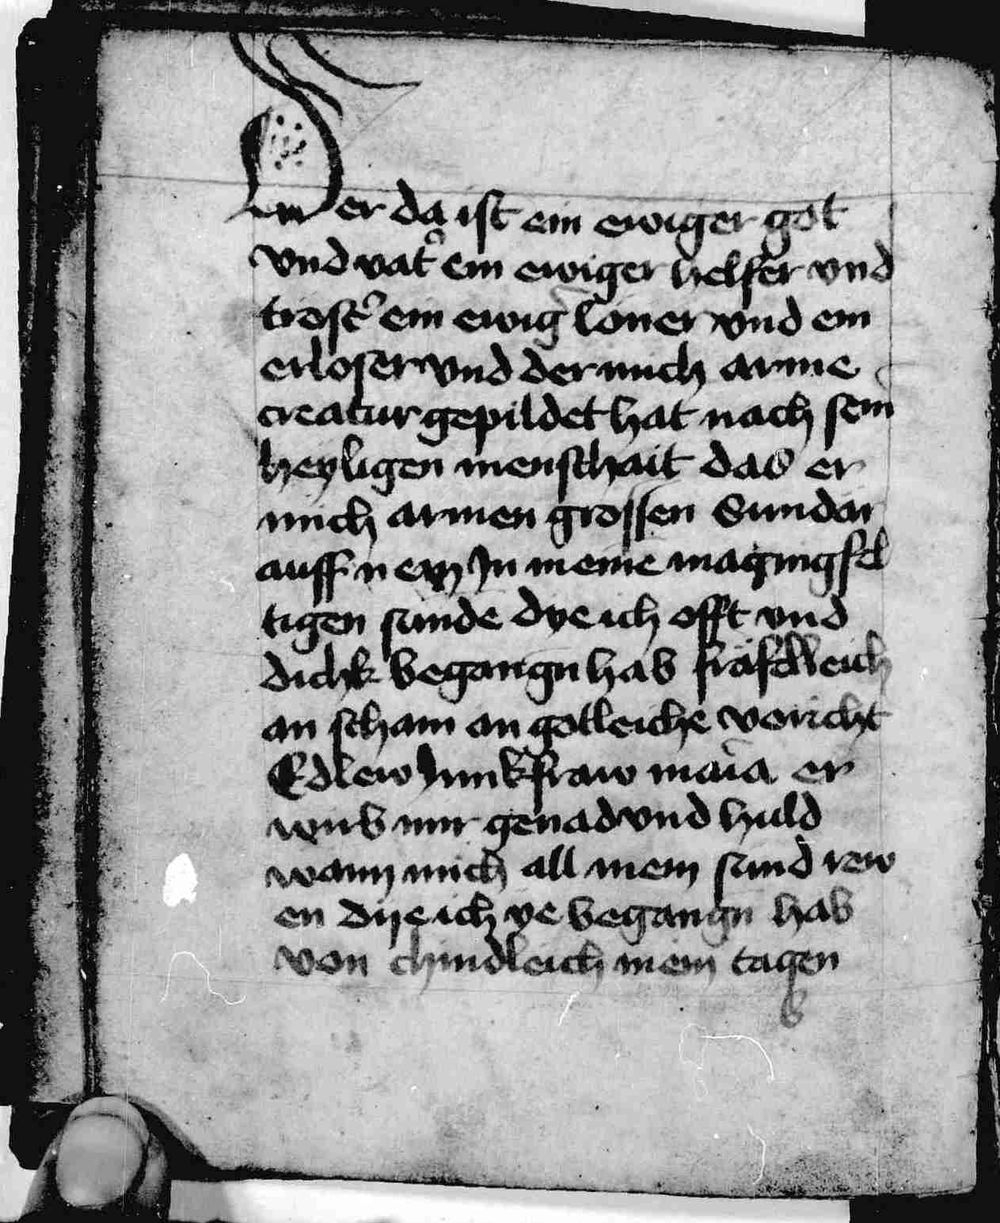 Der da ist ein ewiger got
vnd vat᷑ ein ewiger helfer vnd
trost᷑ ein ewig loner vnd ein
erloser vnd der mich arme
creatur gepildet hat nach sein
heyligen menschait das er
mich armen grossen Sundar
auff nem In meine manigfel
tigen sunde dye ich offt vnd
dickh begangn hab fräfelleich
an scham an gotleiche voricht
Edlew Junkfraw maria er
wirb mir genad vnd huld
wann mich all mein sund rew
en dye ich ye begangn hab
von chindleich mein tagen